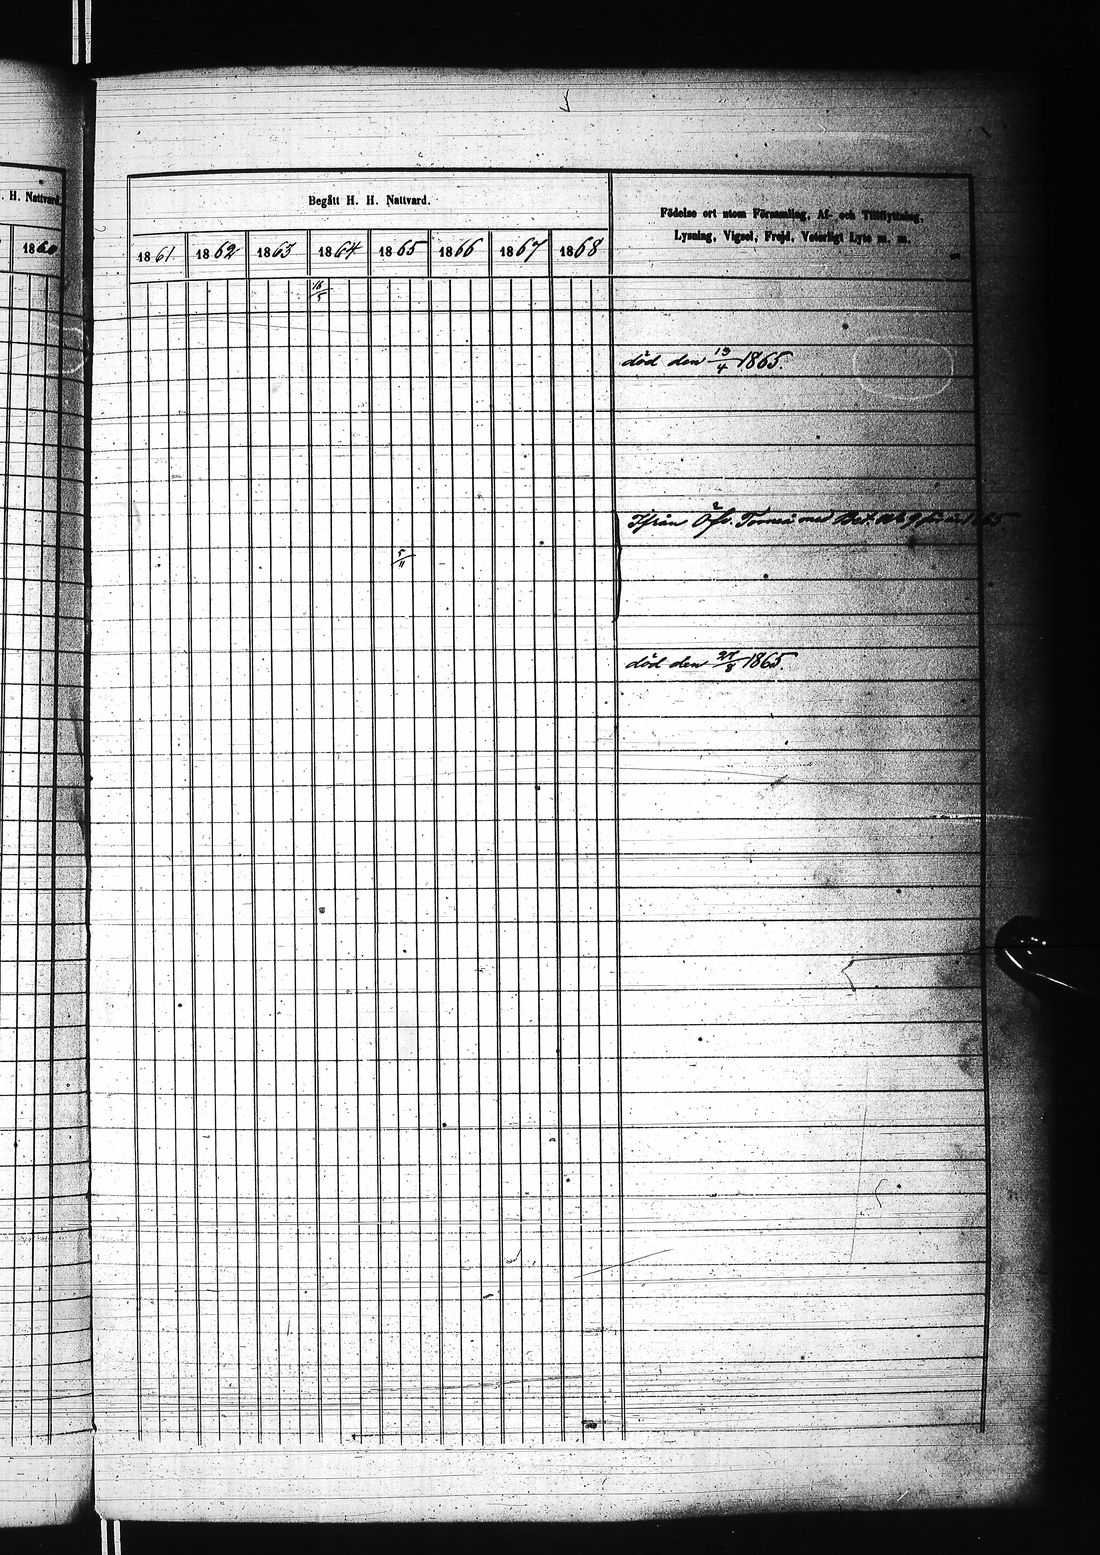 H. Nattvard.
1860
Begått H. H. Nattvard.
Födelse ort utom Församling, Af- och Tillflyttning,
Lysning, Vigsel, Frejd, Veterligt Lyte m. m.
1861 1862 1863 1864 1865 1866 1867 1868
16/5
död den 19/4 1865.
Ifrån Öfv. Torneå med Bet. No 9 för år 1865
5/11
död den 27/8 1865.